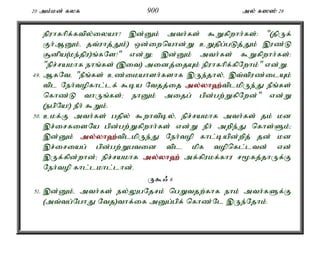 20 அம்மன் கலக 900 அல் கஸஸ்: 28
நிராகரிக்கவில்லையா? இன்னும் அவர்கள் கூறுகிறார்கள்: "(திருக்
குர்ஆனும், தவ்ராத்தும்) ஒன்றையொன்று உறுதிப்படுத்தும் இரண்டு
சூனிய(மந்திர)ங்களே!" என்று; இன்னும் அவர்கள் கூறுகிறார்கள்:
"நிச்சயமாக நாங்கள் (இவை) அனைத்தையும் நிராகரிக்கிறோம்" என்று.
49. ஆகவே "நீங்கள் உண்மையாளர்களாக இருந்தால், இவ்விரண்டையும்
விட நேர்வழிகாட்டக் கூடிய வேதத்தை அல்லாஹ்விடமிருந்து நீங்கள்
கொண்டு வாருங்கள்; நானும் அதைப் பின்பற்றுகிறேன்" என்று
(நபியே!) நீர் கூறும்.
50. உமக்கு அவர்கள் பதில் கூறாவிடில், நிச்சயமாக அவர்கள் தம் மன
இச்சைகளையே பின்பற்றுகிறார்கள் என்று நீர் அறிந்து கொள்ளும்;
இன்னும் அல்லாஹ்விடமிருந்து நேர்வழி காட்டியின்றித் தன் மன
இச்சையைப் பின்பற்றுபவனை விட மிக வழிகெட்டவன் எவன்
இருக்கின்றான்; நிச்சயமாக அல்லாஹ் அக்கிரமக்கார சமூகத்தாருக்கு
நேர்வழி காட்டமாட்டான்.
ருகூஃ 6
51. இன்னும், அவர்கள் நல்லுபதேசம் பெறுவதற்காக நாம் அவர்களுக்கு
(அவ்வப்போது வேத)வாக்கை அனுப்பிக் கொண்டே இருந்தோம்.